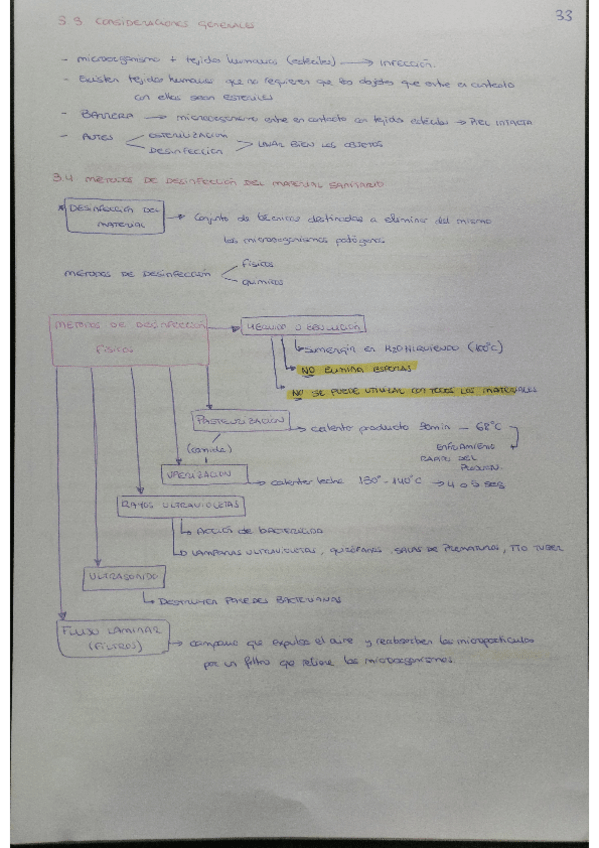 33
3.3 CONSIDERACIONES GENERALES
- microorganismo + tejidos humanos (estériles) → INFECCIÓN.
- Existen tejidos humanos que no requieren que los objetos que entre en contacto
con ellos sean ESTERILES
- BARRERA → microorganismo entre en contacto con tejidos estériles → PIEL INTACTA
- ANTES < ESTERILIZACIÓN
DESINFECCIÓN > LAVAR BIEN LOS OBJETOS
3.4 MÉTODOS DE DESINFECCIÓN DEL MATERIAL SANITARIO
* DESINFECCIÓN DEL MATERIAL → Conjunto de técnicas destinadas a eliminar del mismo
los microorganismos patógenos
MÉTODOS DE DESINFECCIÓN < FÍSICOS
QUÍMICOS
MÉTODOS DE DESINFECCIÓN
FÍSICOS
HERVIDO O EBULLICIÓN
SUMERGIR EN H2O HIRVIENDO (100°C)
NO ELIMINA ESPORAS
NO SE PUEDE UTILIZAR CON TODOS LOS MATERIALES
PASTEURIZACIÓN → calienta producto 30min - 68°C
(comida)
ENFRIAMIENTO
RAPIDO DEL
UPERIZACIÓN → calentar leche 130° - 140°C → 4 o 5 SEG
RAYOS ULTRAVIOLETAS
ACCIÓN de BACTERICIDA
LAMPARAS ULTRAVIOLETAS, QUIRÓFANOS, SALAS DE PREMATUROS, TTO TUBER
ULTRASONIDO
DESTRUYEN PAREDES BACTERIANAS
FLUJO LAMINAR
(FILTROS) → campana que expulsa el aire y reabsorben las micropartículas
por un filtro que retiene los microorganismos.